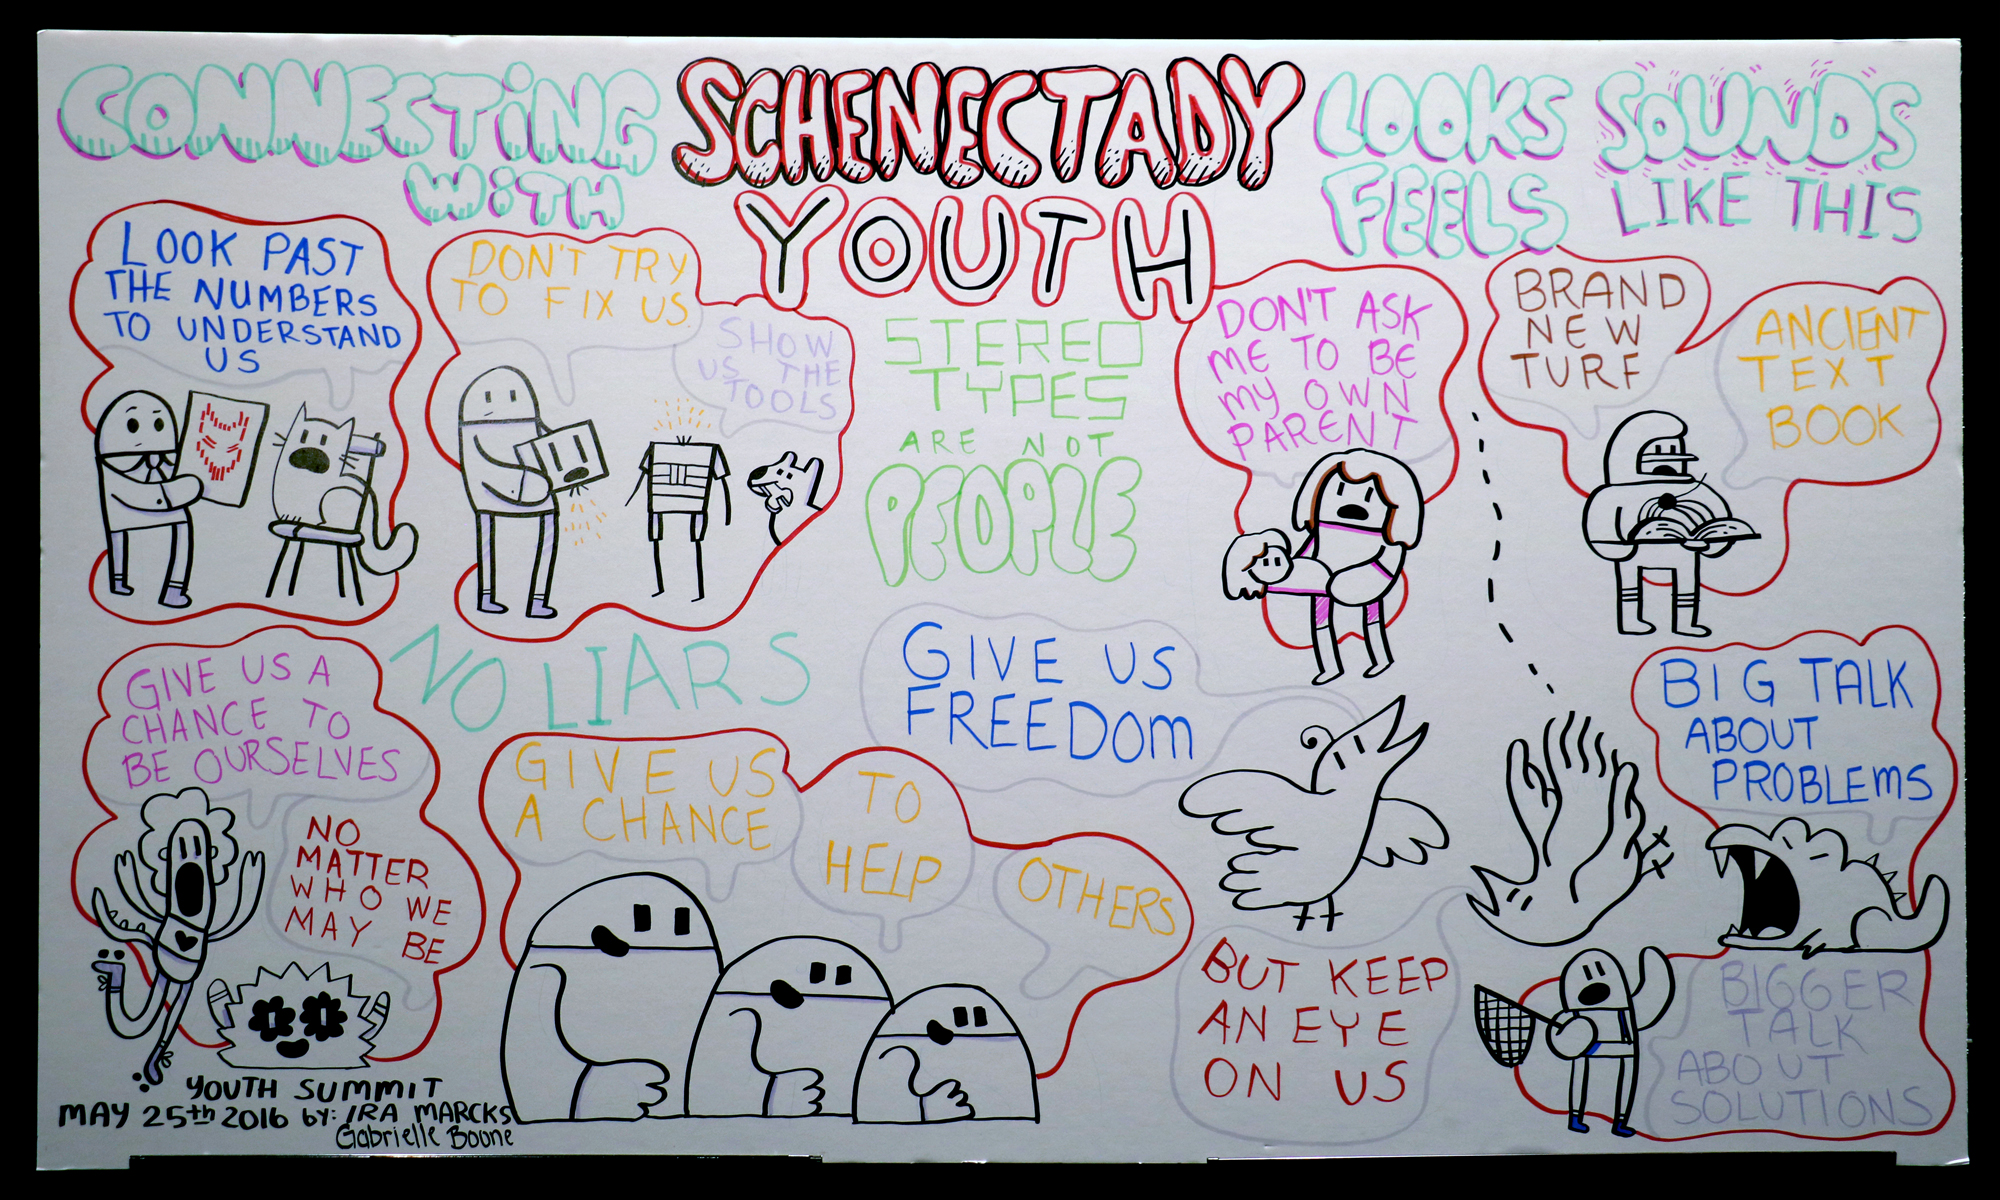 CONNECTING
WITH
SCHENECTADY
YOUTH
LOOKS SOUNDS
FEELS LIKE THIS
LOOK PAST
THE NUMBERS
TO UNDERSTAND
US
DON'T TRY
TO FIX US
SHOW
US THE
TOOLS
STEREO
TYPES
ARE NOT
PEOPLE
DON'T ASK
ME TO BE
MY OWN
PARENT
BRAND
NEW
TURF
ANCIENT
TEXT
BOOK
GIVE US A
CHANCE TO
BE OURSELVES
NO
MATTER
WHO WE
MAY BE
NO LIARS
GIVE US
A CHANCE
TO
HELP
OTHERS
GIVE US
FREEDOM
BUT KEEP
AN EYE
ON US
BIG TALK
ABOUT
PROBLEMS
BIGGER
TALK
ABOUT
SOLUTIONS
YOUTH SUMMIT
MAY 25th 2016 by: IRA MARCKS
Gabrielle Boone